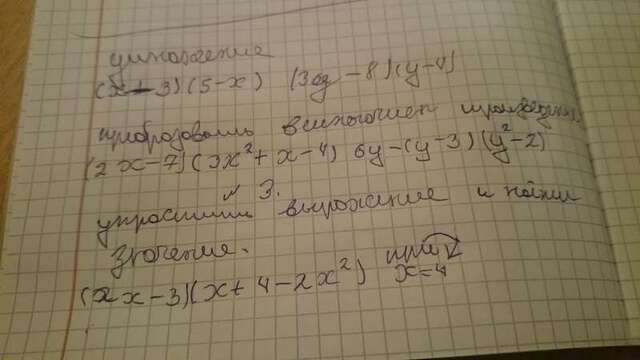 умножение
(x-3)(5-x) (3y-8)(y-4)
преобразовать в многочлен
(2x-7)(3x²+x-4) 6y-(y-3)(y²-2)
N 3.
упростить выражение и найти
значение.
(2x-3)(x+4-2x²) при
x=4